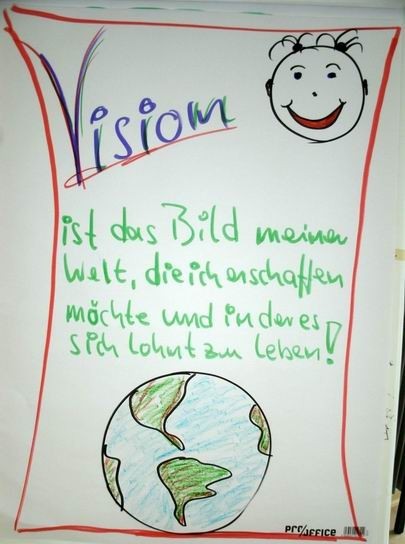 Vision
ist das Bild meiner
Welt, die ich erschaffen
möchte und in der es
sich lohnt zu leben!
pro/office